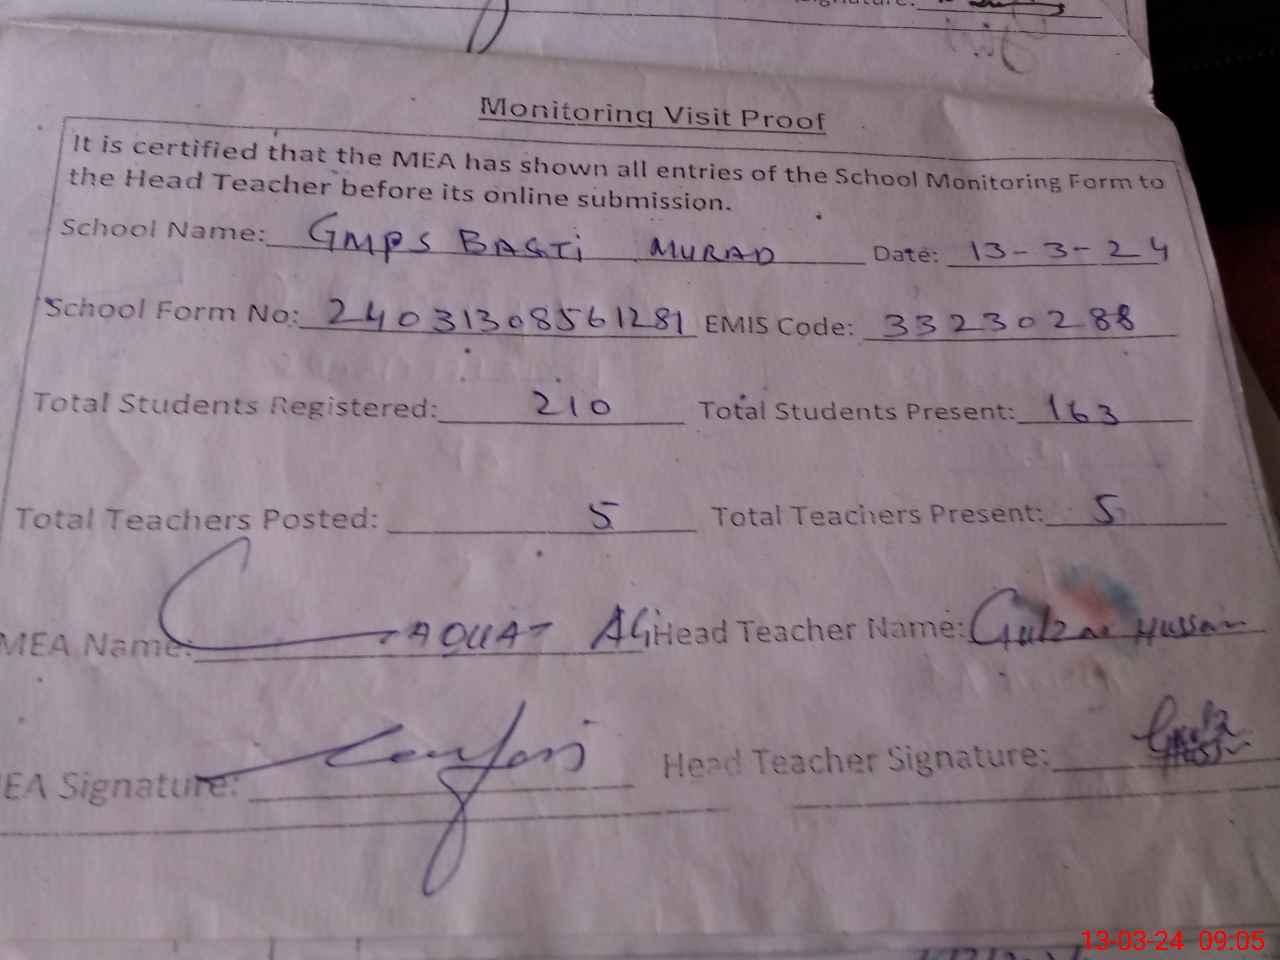 Monitoring Visit Proof
It is certified that the MEA has shown all entries of the School Monitoring Form to
the Head Teacher before its online submission.
School Name: GMPS BASTI MURAD Date: 13-3-24
School Form No: 24031308561281 EMIS Code: 33230288
Total Students Registered: 210 Total Students Present: 163
Total Teachers Posted: 5 Total Teachers Present: 5
MEA Name: Head Teacher Name: Gulzar Hussain
EA Signature: Head Teacher Signature:
13-03-24 09:05